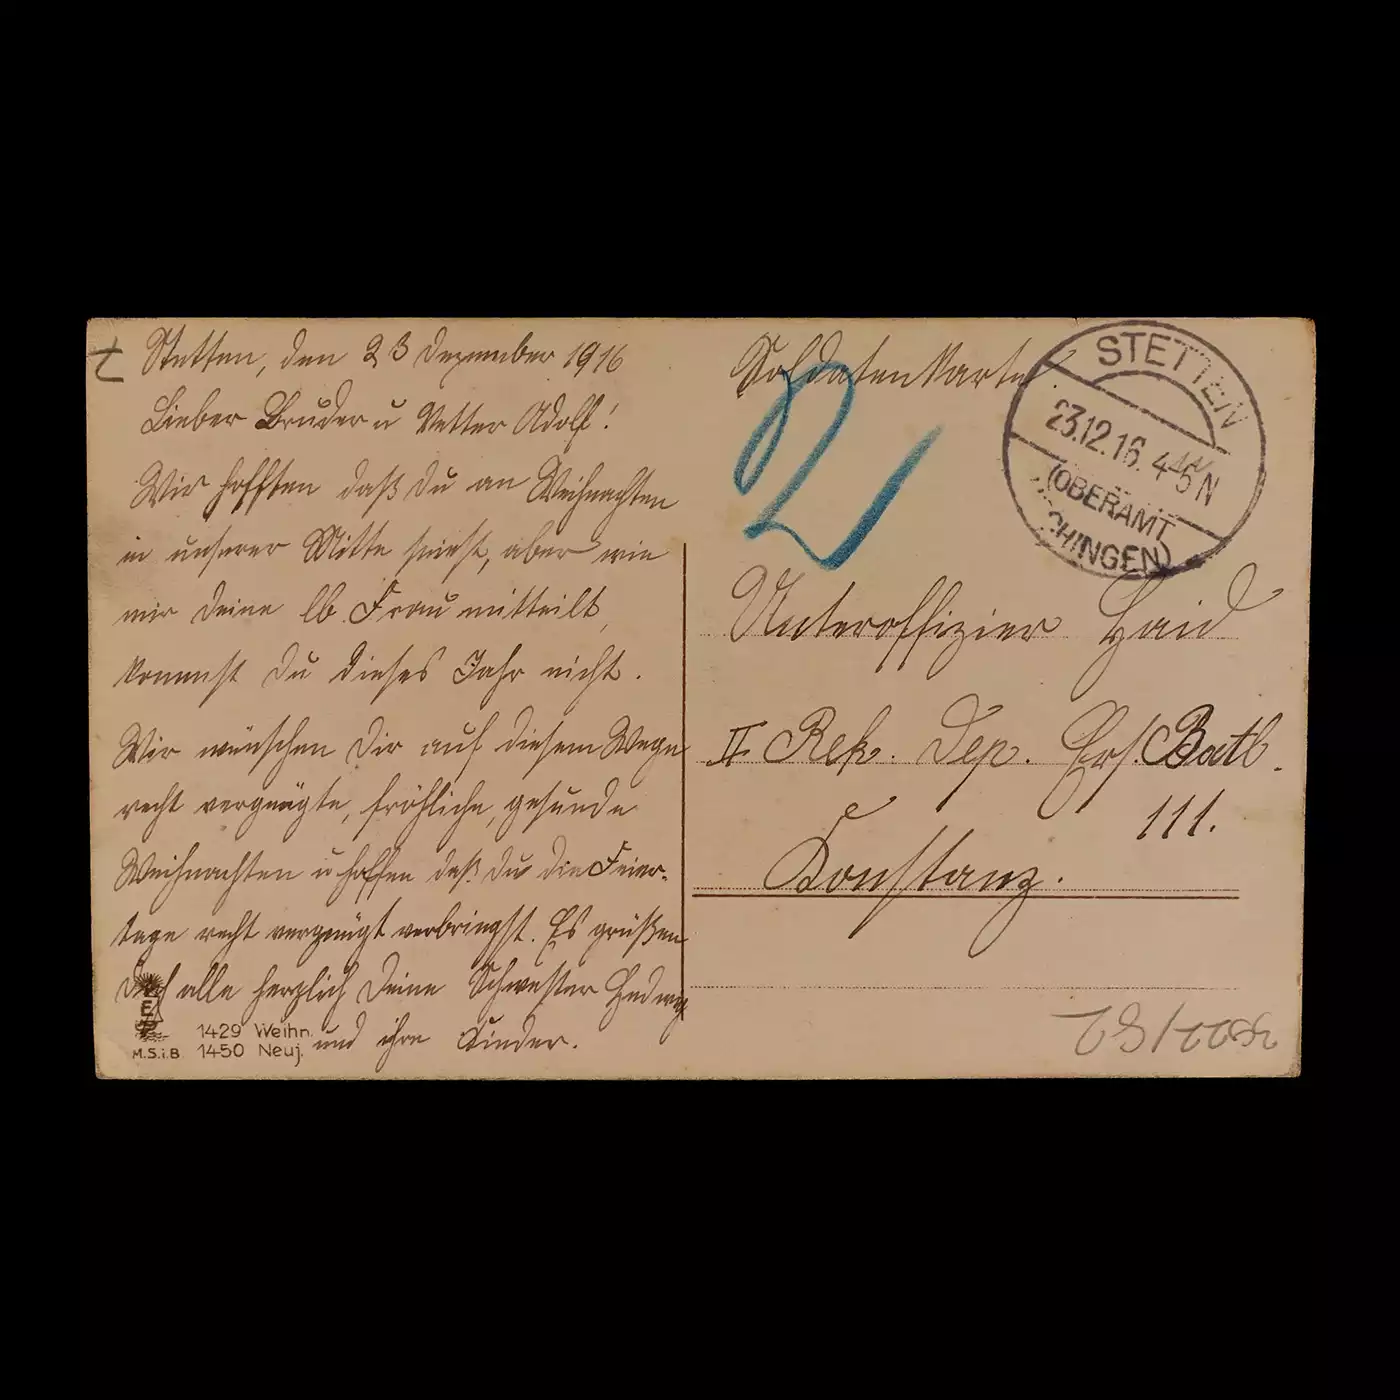 Stetten, den 23 Dezember 1916
Lieber Bruder u Vetter Adolf!
Wir hofften daß Du an Weihnachten
in unserer Mitte seiest, aber wie
mir Deine lb. Frau mitteilt,
kommst Du dieses Jahr nicht.
Wir wünschen Dir auf diesem Wege
recht vergnügte, fröhliche, gesunde
Weihnachten u hoffen daß Du die Feier-
tage recht vergnügt verbringst. Es grüßen
Dich alle herzlich Deine Schwester Hedwig
und ihre Kinder.
M.S.i.B. 1429 Weihn.
1450 Neuj.
Soldatenkarte.
STETTEN
23.12.16. 4-5 N
(OBERAMT
CHINGEN)
Unteroffizier Haid
II Rek. Dep. Ers. Batl.
111.
Konstanz.